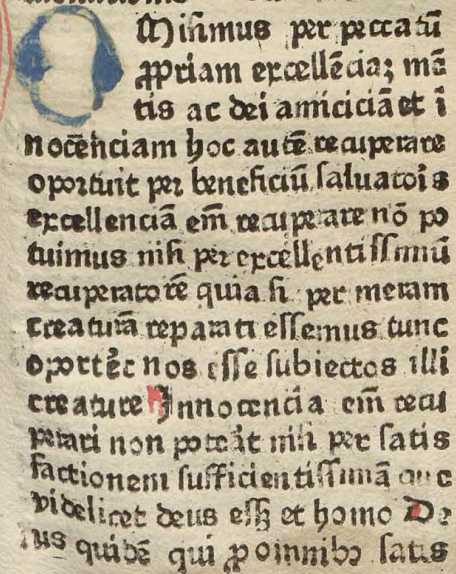 OMiſimus per peccatū
ꝓpriam excellēcia; mē
tis ac dei amiciciā et ī
nocēnciam hoc autē recuperare
oportuit per beneficiū ſaluatoīs
excellenciā em̄ recuperare nō po
tuimus niſi per excellentiſſimū
recuperatorē quia ſi per meram
creaturā reparati eſſemus tunc
oportēc nos eſſe ſubiectos illi
creature Innocencia em̄ recu
perari non poterāt niſi per ſatis
factionem ſufficientiſſimā que
videlicet deus eſſꝫ et homo De
us quidē qui ꝓ omnibꝫ ſatis